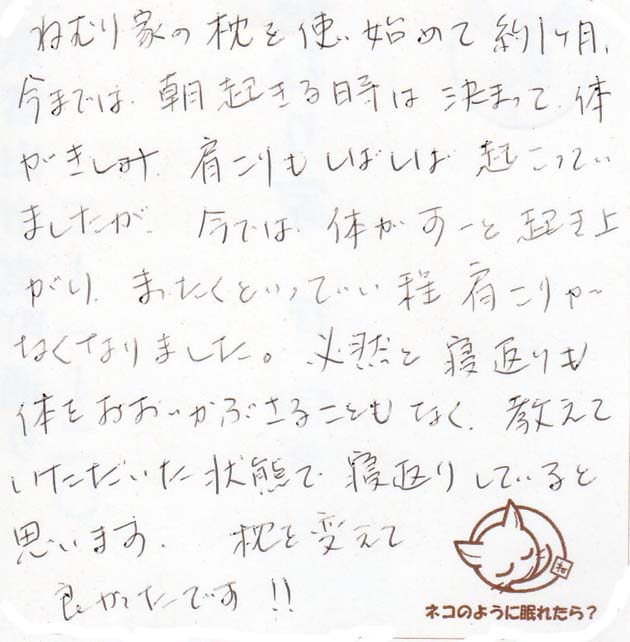 ねむり家の枕を使い始めて約1ヶ月、
今までは、朝起きる時は決まって、体
がきしみ、肩こりもしばしば起こってい
ましたが、今では、体がすーと起き上
がり、まったくといっていい程肩こりが
なくなりました。必然と寝返りも
体をおおいかぶさることもなく、教えて
いただいた状態で寝返りしていると
思います。枕を変えて
良かったです!!
和
ネコのように眠れたら？